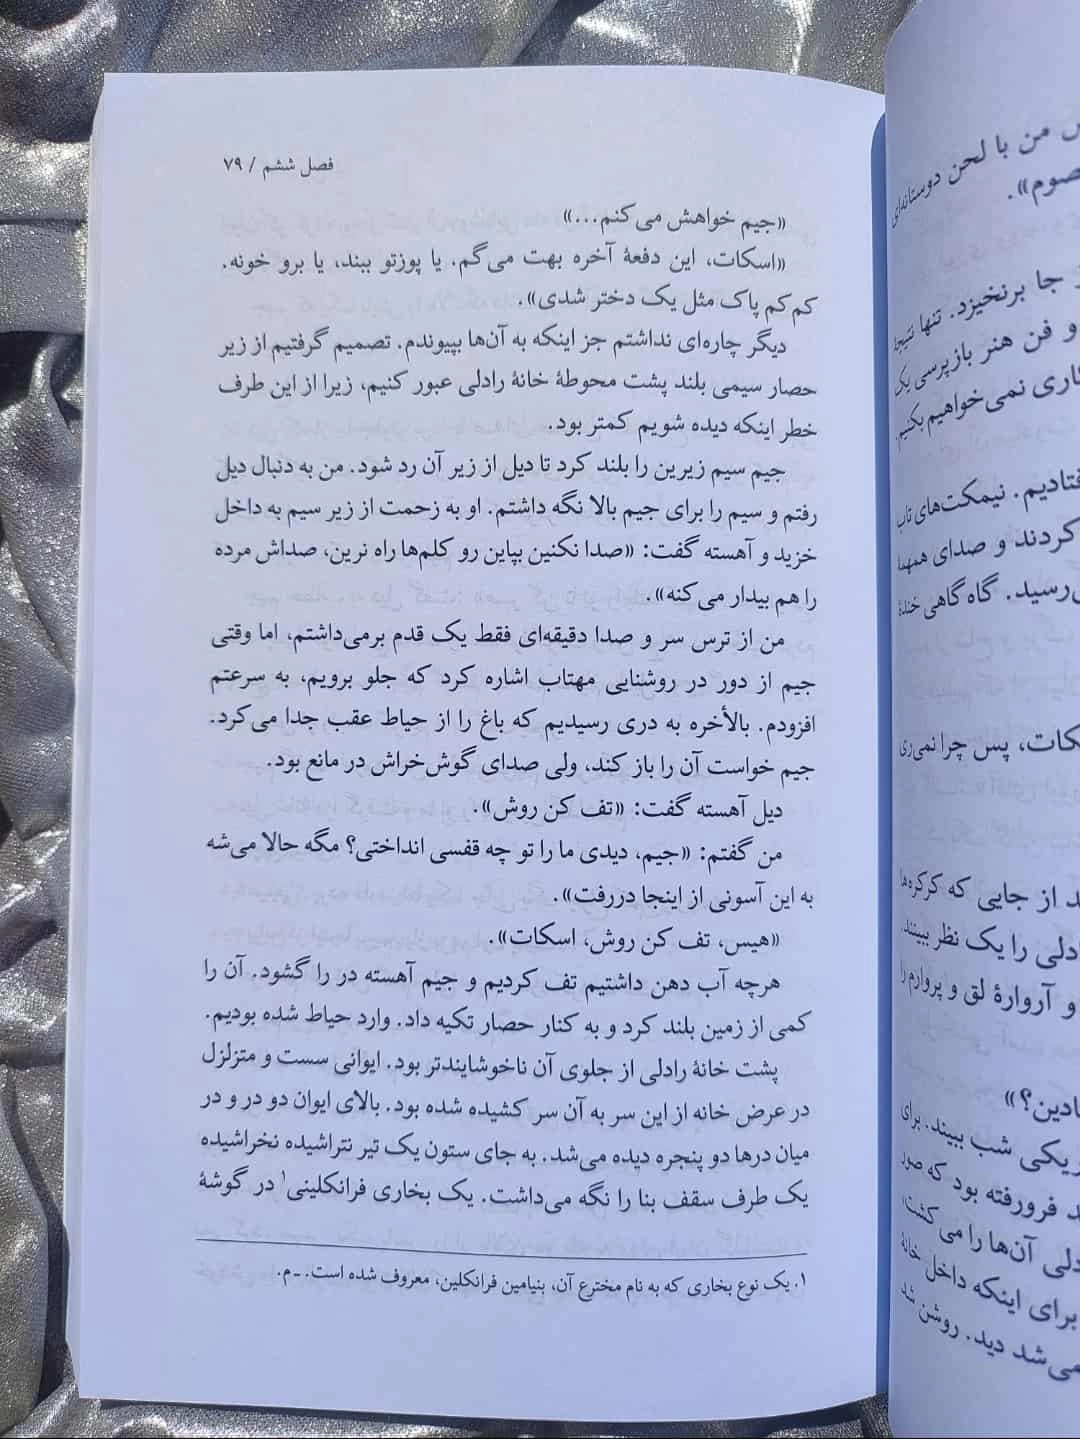 س من با لحن دوستانه‌ای
صوم».
جا برنخیزد. تنها نتیجۀ
و فن هنر بازپرسی یک
کاری نمی‌خواهیم بکنیم.
فتادیم. نیمکت‌های تاب
کردند و صدای همهمۀ
ی‌رسید. گاه‌گاهی خندۀ
سکات، پس چرا نمی‌ری
د از جایی که کرکره‌ها
دلی را یک نظر ببینند.
و آروارۀ لق و پروارم را
ادین؟»
ریکی شب ببیند. برای
د فرورفته بود که صور
دلی آن‌ها را می‌کشت،
برای اینکه داخل خانۀ
می‌شد دید. روشن شد
فصل ششم / ۷۹
«جیم خواهش می‌کنم...»
«اسکات، این دفعۀ آخره بهت می‌گم. یا پوزتو ببند، یا برو خونه.
کم‌کم پاک مثل یک دختر شدی».
دیگر چاره‌ای نداشتم جز اینکه به آن‌ها بپیوندم. تصمیم گرفتیم از زیر
حصار سیمی بلند پشت محوطۀ خانۀ رادلی عبور کنیم، زیرا از این طرف
خطر اینکه دیده شویم کمتر بود.
جیم سیم زیرین را بلند کرد تا دیل از زیر آن رد شود. من به دنبال دیل
رفتم و سیم را برای جیم بالا نگه داشتم. او به زحمت از زیر سیم به داخل
خزید و آهسته گفت: «صدا نکنین بپاین رو کلم‌ها راه نرین، صداش مرده
را هم بیدار می‌کنه».
من از ترس سر و صدا دقیقه‌ای فقط یک قدم برمی‌داشتم، اما وقتی
جیم از دور در روشنایی مهتاب اشاره کرد که جلو برویم، به سرعتم
افزودم. بالأخره به دری رسیدیم که باغ را از حیاط عقب جدا می‌کرد.
جیم خواست آن را باز کند، ولی صدای گوش‌خراش در مانع بود.
دیل آهسته گفت: «تف کن روش».
من گفتم: «جیم، دیدی ما را تو چه قفسی انداختی؟ مگه حالا می‌شه
به این آسونی از اینجا دررفت».
«هیس، تف کن روش، اسکات».
هرچه آب دهن داشتیم تف کردیم و جیم آهسته در را گشود. آن را
کمی از زمین بلند کرد و به کنار حصار تکیه داد. وارد حیاط شده بودیم.
پشت خانۀ رادلی از جلوی آن ناخوشایندتر بود. ایوانی سست و متزلزل
در عرض خانه از این سر به آن سر کشیده شده بود. بالای ایوان دو در و در
میان درها دو پنجره دیده می‌شد. به جای ستون یک تیر نتراشیده نخراشیده
یک طرف سقف بنا را نگه می‌داشت. یک بخاری فرانکلینی۱ در گوشۀ
۱. یک نوع بخاری که به نام مخترع آن، بنیامین فرانکلین، معروف شده است. ـ م.